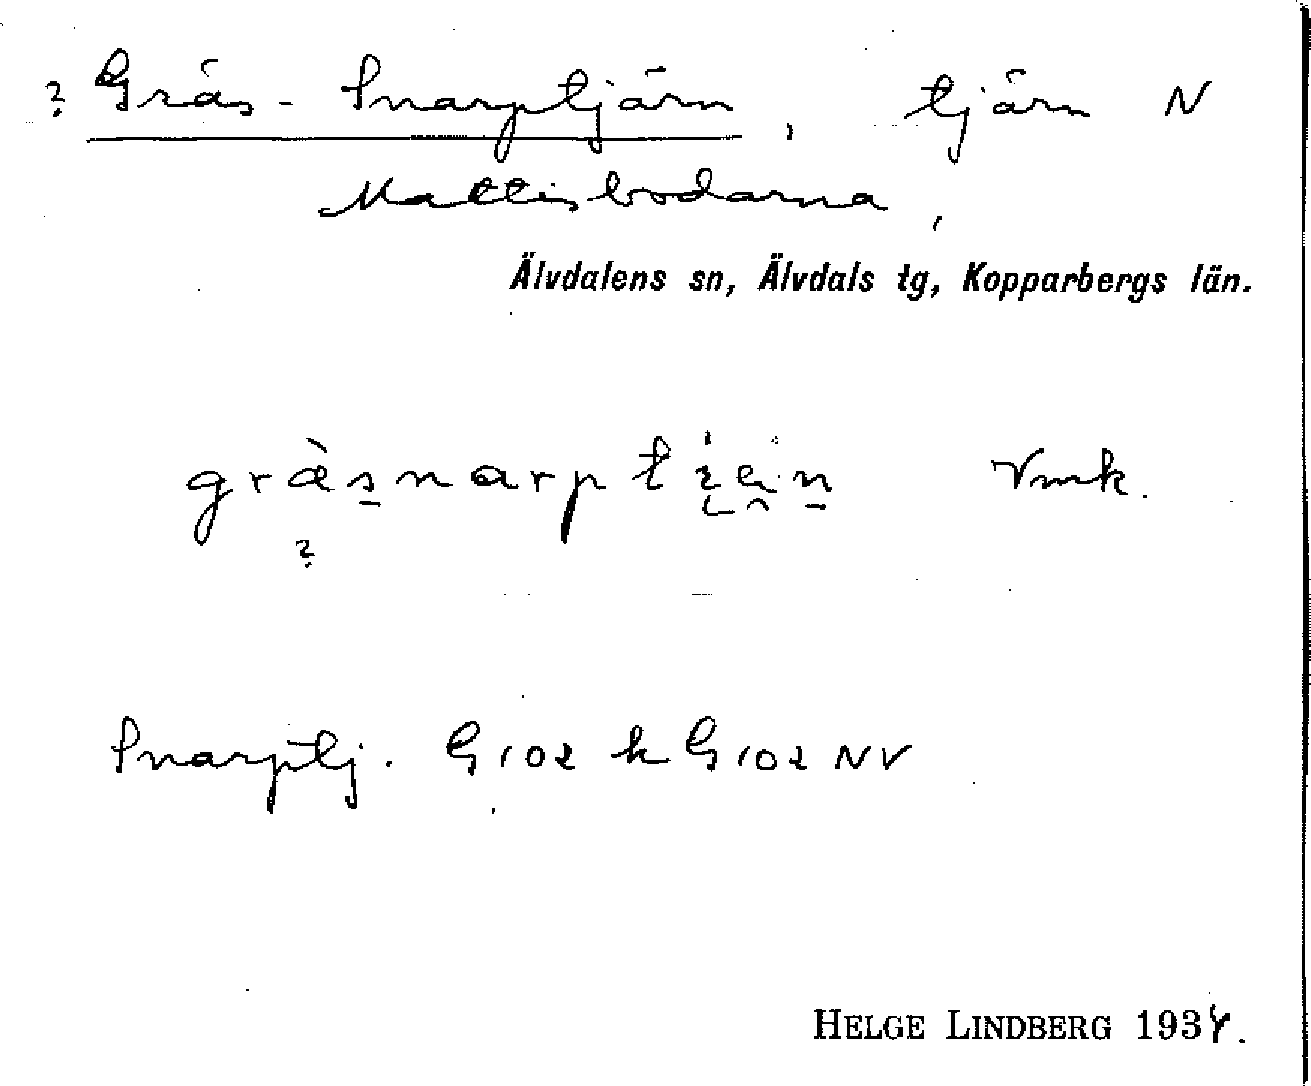 ? Gräs-Snarptjärn, tjärn N
Mattisbodarna,
Älvdalens sn, Älvdals tg, Kopparbergs län.
Vmk.
?
Snarptj. G 102 k G 102 NV
HELGE LINDBERG 1934.